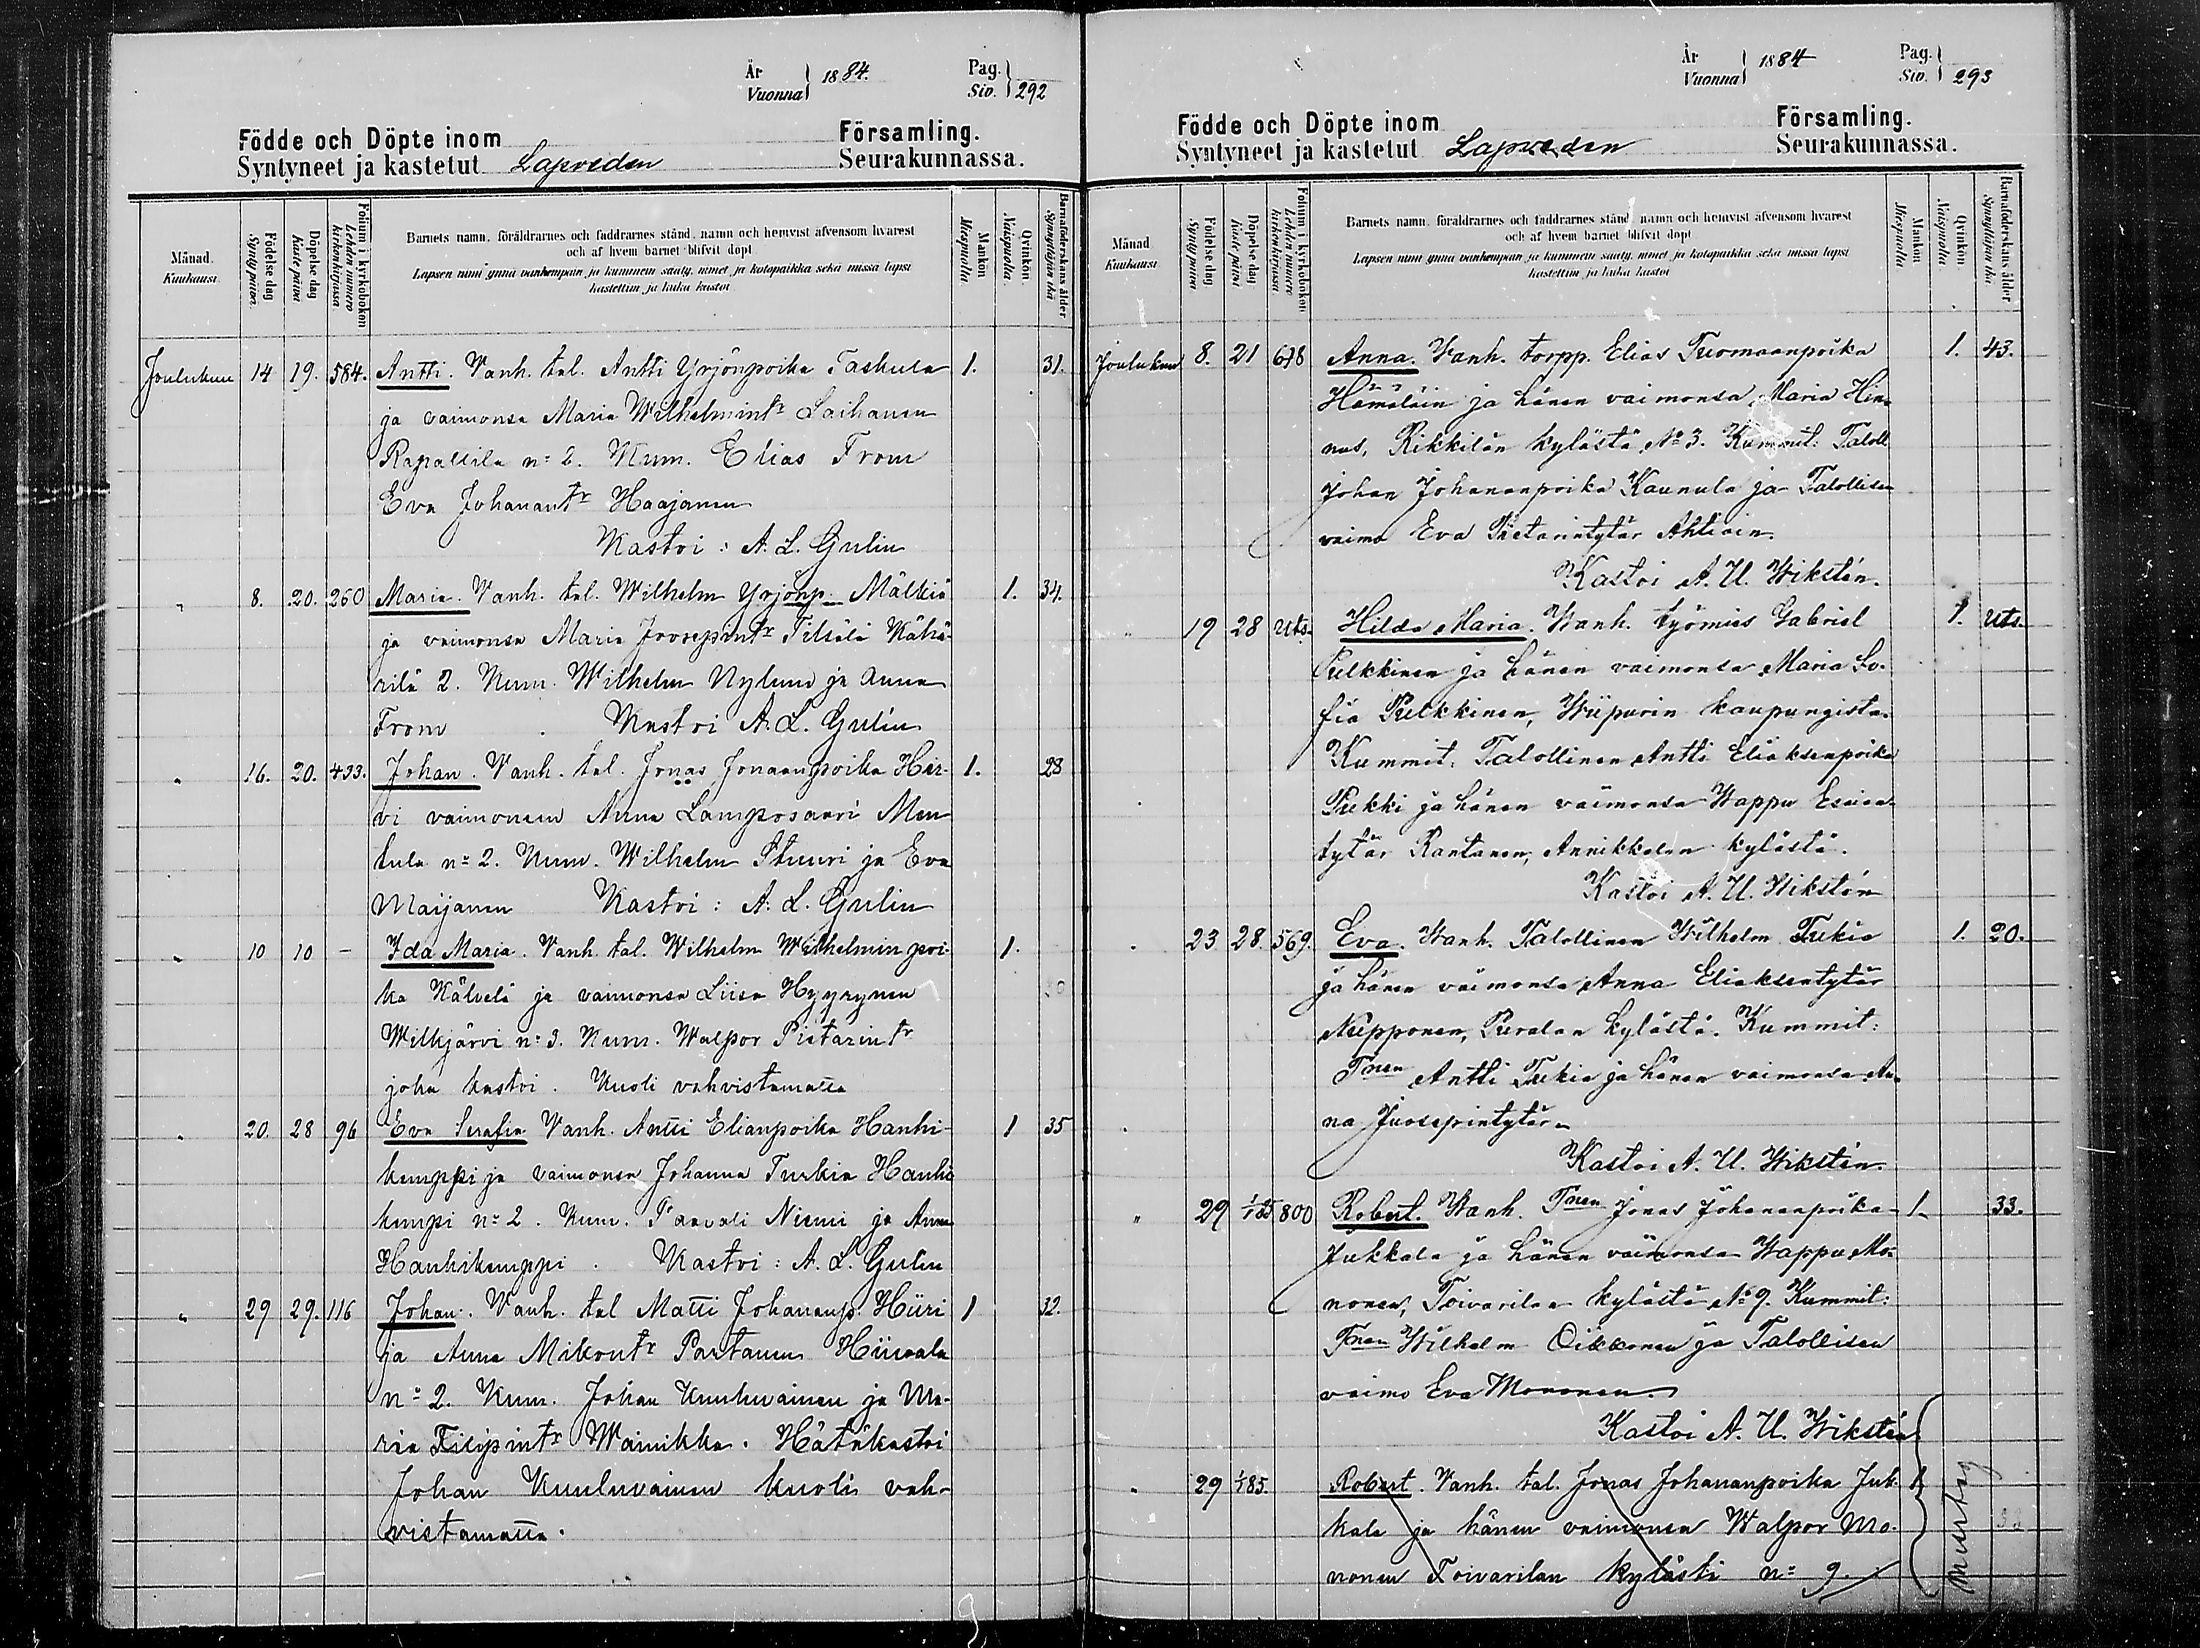 År
Vuonna 1884.
Pag.
Siv. 292
Födde och Döpte inom Församling.
Syntyneet ja kastetut Lapveden Seurakunnassa.
Månad.
Kuukausi
Födelse dag
Synty päivä.
Döpelse dag
Kaste päivä
Folium i kyrkoboken
Lehden numero
kirkonkirjassa
Barnets namn, föräldrarnes och faddrarnes stånd, namn och hemvist äfvensom hvarest
och af hvem barnet blifvit döpt
Lapsen nimi ynnä vanhempain ja kummein sääty, nimet ja kotopaikka sekä missä lapsi
kastettiin ja kuka kastoi
Mankön
Miespuolia
Qvinkön.
Naispuolia.
Barnaföderskans ålder
Synnyttäjän ikä
Joulukuu 14 19. 584. Antti. Vanh. tal. Antti Yrjönpoika Taskula 1. 31.
ja vaimonsa Maria Wilhelmintr Laihanen
Rapattila n:o 2. Kum. Elias From
Eva Johanantr Haajanen
Kastoi: A. L. Gulin
" 8. 20. 260 Maria. Vanh. tal. Wilhelm Yrjönp. Mälkiä 1. 34.
ja vaimonsa Maria Joosepintr Tilsälä Kähä-
rilä 2. Kum. Wilhelm Nylund ja Anna
From Kastoi A. L. Gulin
" 16. 20. 433. Johan. Vanh. tal. Jonas Jonaanpoika Hir- 1. 28
vi vaimoneen Anna Lamposaari Men
tula n:o 2. Kum. Wilhelm Stuuri ja Eva
Maijanen Kastoi: A. L. Gulin
" 10 10 - Ida Maria. Vanh. tal. Wilhelm Wilhelmin poi- 1.
ka Kälvelä ja vaimonsa Liisa Hyyrynen
Wilkjärvi n:o 3. Kum. Walpor Pietarintr
joka kastoi. Kuoli vahvistamatta
" 20. 28 96 Eva Serafia Vanh. Antti Elianpoika Hanhi- 1 35
kemppi ja vaimonsa Johanna Turkia Hanhi
kempi n:o 2. Kum. Paavali Niemi ja Anna
Hanhikemppi. Kastoi: A. L. Gulin
" 29 29. 116 Johan. Vanh. tal Matti Johananp. Hiiri 1 32.
ja Anna Mikontr Partanen Hiivala
n:o 2. Kum. Johan Kuuluvainen ja Ma-
ria Filipintr Wainikka. Hätäkastoi
Johan Kuuluvainen kuoli vah-
vistamatta.
År
Vuonna 1884
Pag.
Siv. 293
Födde och Döpte inom Församling.
Syntyneet ja kastetut Lapveden Seurakunnassa.
Månad
Kuukausi
Födelse dag
Synty päivä
Döpelse dag
Kaste päivä
Folium i kyrkoboken
Lehden numero
kirkonkirjassa
Barnets namn, föräldrarnes och faddrarnes stånd, namn och hemvist äfvensom hvarest
och af hvem barnet blifvit döpt
Lapsen nimi ynnä vanhempain ja kummein sääty, nimet ja kotopaikka sekä missä lapsi
kastettiin ja kuka kastoi
Mankön
Miespuolia
Qvinkön
Naispuolia
Barnaföderskans ålder
Synnyttäjän ikä
Joulukuu 8. 21 678 Anna. Vanh. torpp. Elias Tuomaanpoika 1. 43.
Hämäläin ja hänen vaimonsa Maria Hin-
nus, Rikkilän kylästä No 3. Kummit: Taloll
Johan Johananpoika Kaunula ja Talollisen
vaimo Eva Pietarintytär Ahtiain.
Kastoi A. U. Wikstén.
" 19 28 Uts. Hilda Maria. Vanh. työmies Gabriel 1. Uts.
Pulkkinen ja hänen vaimonsa Maria So-
fia Pulkkinen, Wiipurin kaupungista.
Kummit. Talollinen Antti Eliaksenpoika
Pukki ja hänen vaimonsa Wappu Esaian-
tytär Rantanen, Annikkalan kylästä.
Kastoi A. U. Wikstén
" 23 28. 569. Eva. Vanh. Talollinen Wilhelm Tukia 1. 20.
ja hänen vaimonsa Anna Eliaksentytär
Nupponen, Puralan kylästä. Kummit:
Tnen Antti Tukia ja hänen vaimonsa An-
na Juosepintytär.
Kastoi A. U. Wikstén.
" 29 1/1 85 800 Robert. Vanh. Tnen Jonas Johananpoika 1. 33.
Jukkala ja hänen vaimonsa Wappu Mo-
nonen, Toivarilan kylästä No 9. Kummit:
Tnen Wilhelm Oikkonen ja Talollisen
vaimo Eva Mononen.
Kastoi A. U. Wikstén
" 29 1/1 85. Robert. Vanh. tal. Jonas Johananpoika Juk- 1.
kala ja hänen vaimonsa Walpor Mo-
nonen Toivarilan kylästä n:o 9.